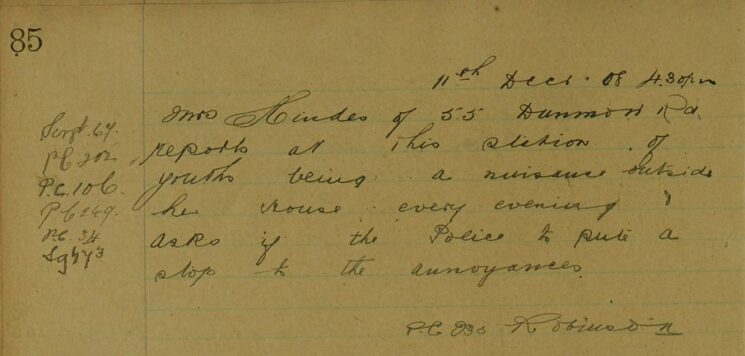 85
11th Decr. 08 4.30pm
Mrs Hindes of 55 Dunmow Rd.
reports at this station of
youths being a nuisance outside
her house every evening &
asks if the Police to put a
stop to the annoyances
P.C. 230 Robinson
Sergt. 64.
PC 202
P.C. 106
PC 249.
P.C. 34
Sgt 73